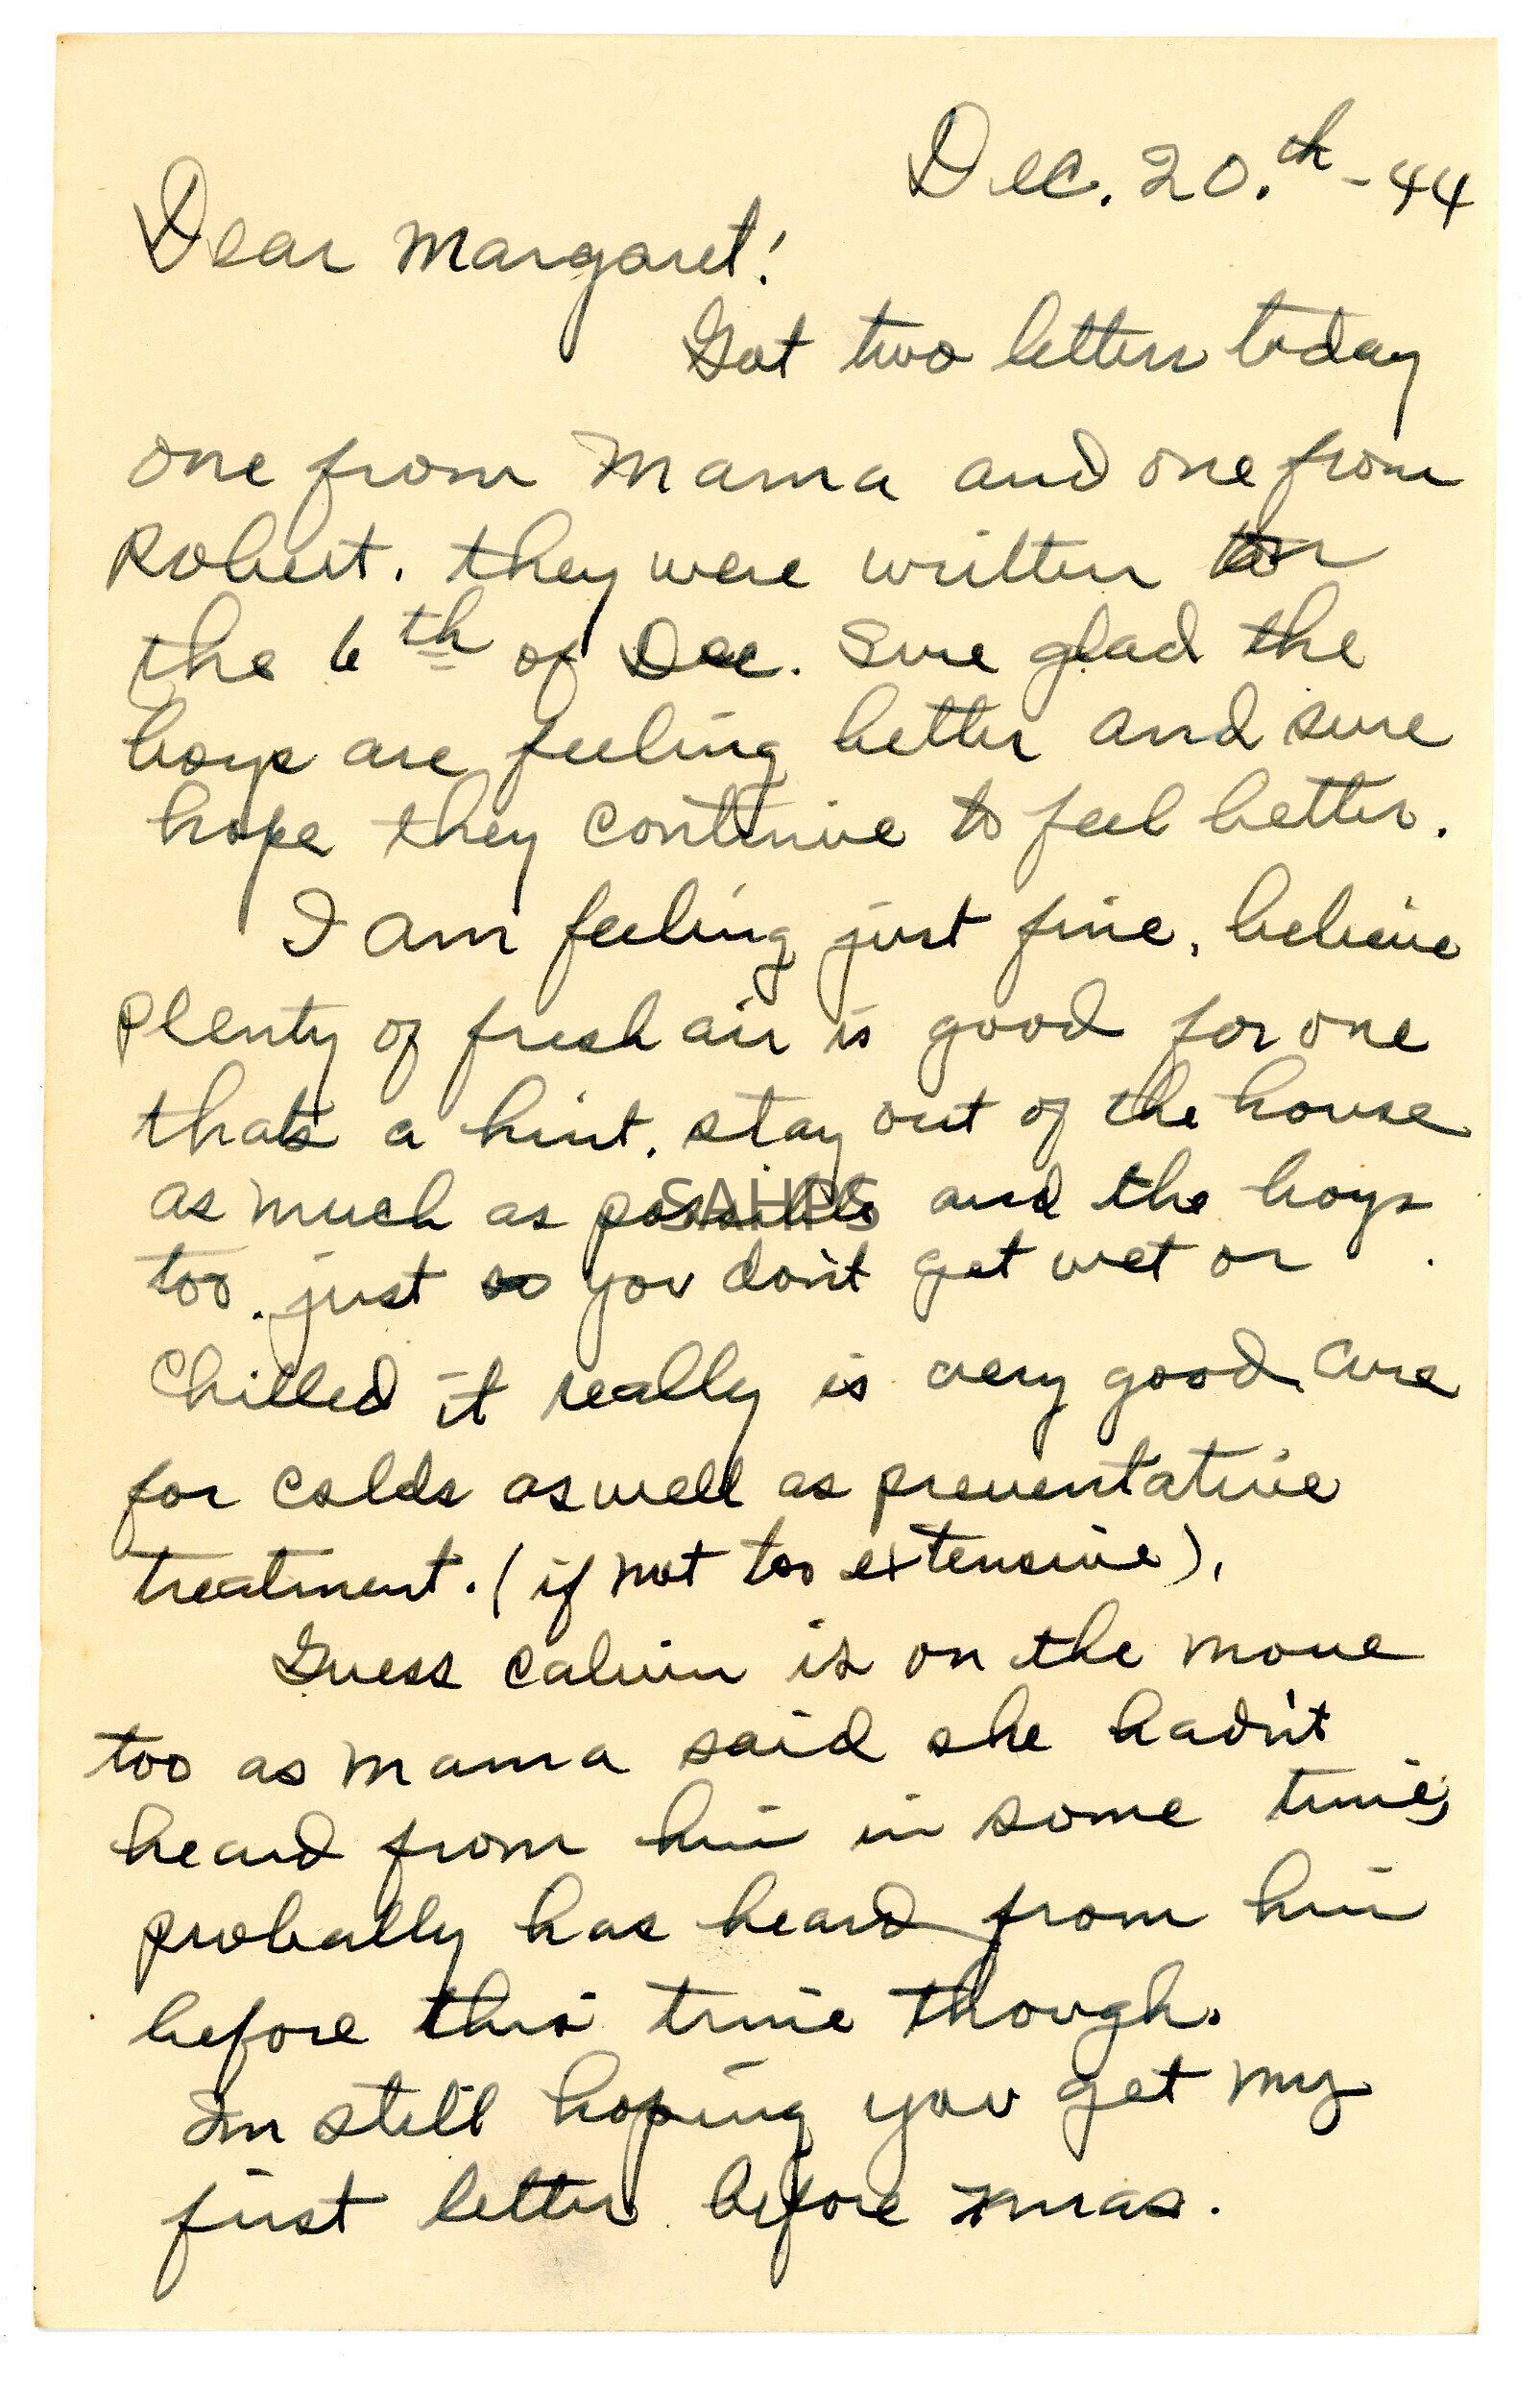 Dec. 20.th - 44
Dear Margaret!
Got two letters today
one from Mama and one from
Robert. they were written on
the 6th of Dec. Sure glad the
boys are feeling better and sure
hope they continue to feel better.
I am feeling just fine, believe
plenty of fresh air is good for one
thats a hint. stay out of the house
as much as possible and the boys
SAHPS
too. just so you don't get wet or
chilled it really is very good cure
for colds as well as preventative
treatment. (if not too extensive).
Guess Calvin is on the move
too as Mama said she hadn't
heard from him in some time,
probally has heard from him
before this time though.
Im still hoping you get my
first letter before xmas.